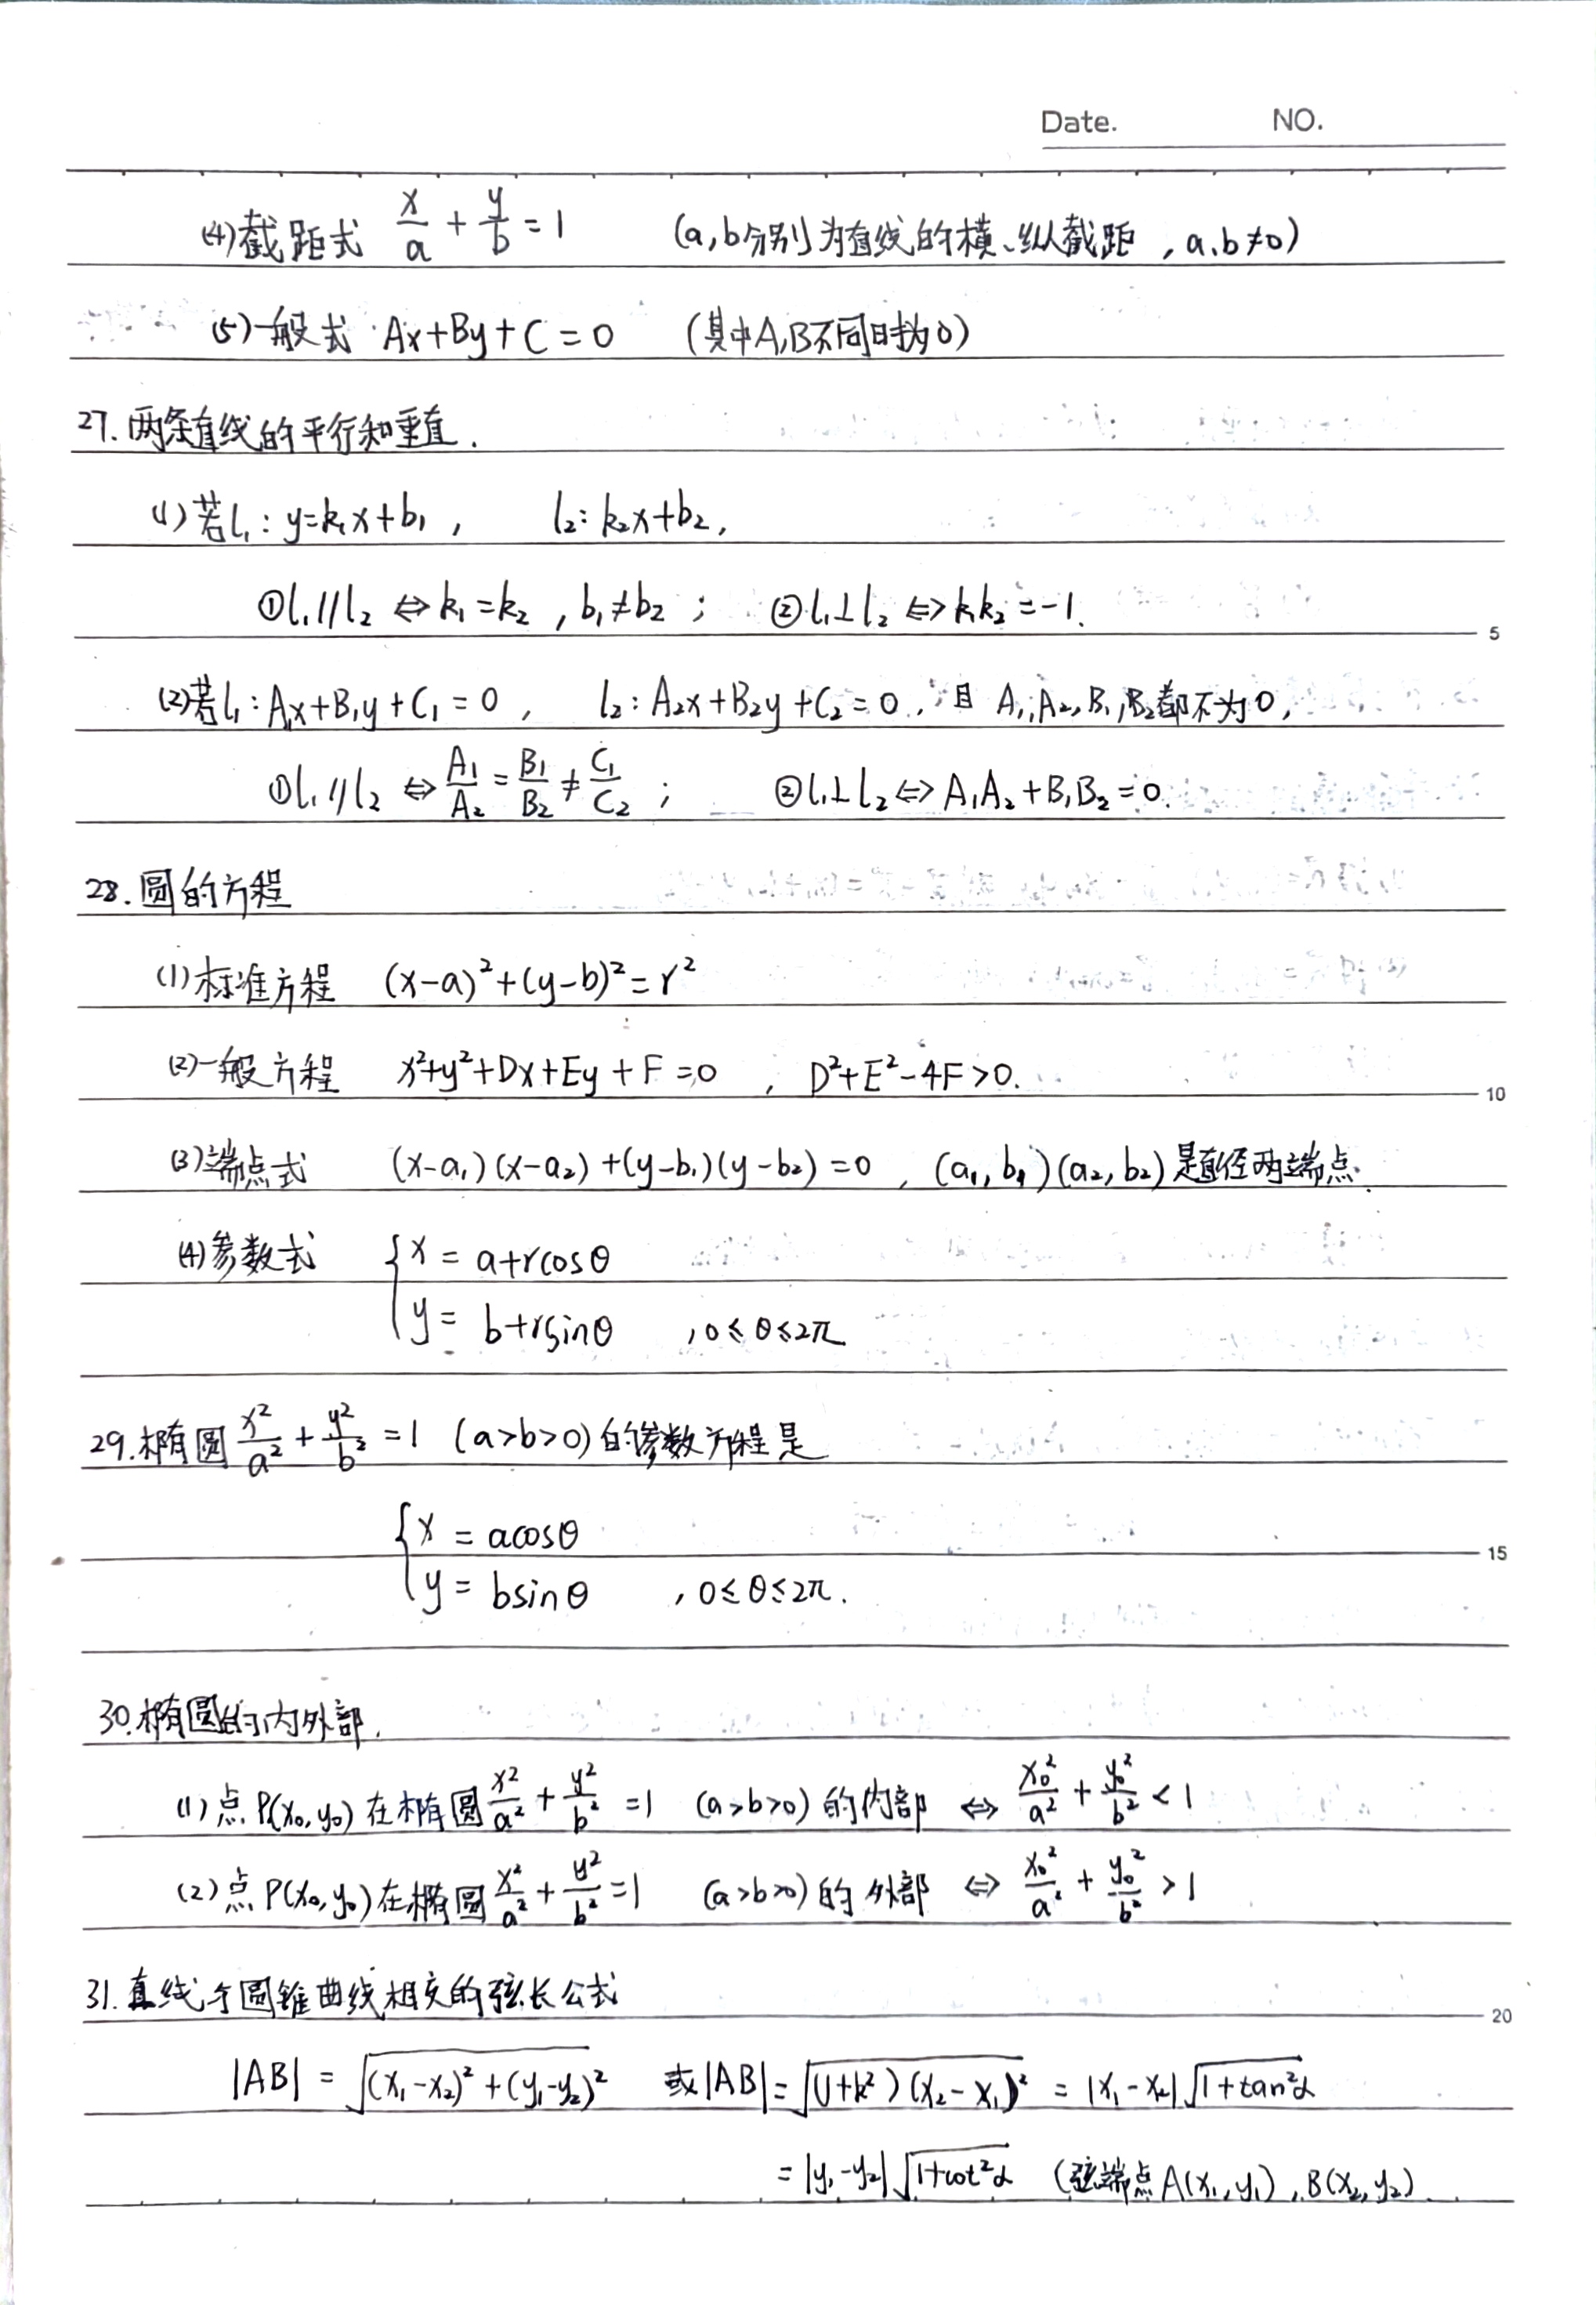 Date. NO.
(4)截距式 x/a + y/b = 1 (a,b分别为直线的横、纵截距,a、b≠0)
(5)一般式 Ax+By+C=0 (其中A,B不同时为0)
27.两条直线的平行和垂直.
(1)若l₁:y=k₁x+b₁, l₂:k₂x+b₂,
①l₁//l₂⇔k₁=k₂,b₁≠b₂; ②l₁⊥l₂⇔k₁k₂=-1.
5
(2)若l₁:A₁x+B₁y+C₁=0, l₂:A₂x+B₂y+C₂=0,且A₁,A₂,B₁,B₂都不为0,
①l₁//l₂⇔A₁/A₂=B₁/B₂≠C₁/C₂; ②l₁⊥l₂⇔A₁A₂+B₁B₂=0.
28.圆的方程
(1)标准方程 (x-a)²+(y-b)²=r²
(2)一般方程 x²+y²+Dx+Ey+F=0, D²+E²-4F>0.
10
(3)端点式 (x-a₁)(x-a₂)+(y-b₁)(y-b₂)=0,(a₁,b₁)(a₂,b₂)是直径两端点.
(4)参数式 {x=a+rcosθ
y=b+rsinθ ,0≤θ≤2π
29.椭圆x²/a²+y²/b²=1 (a>b>0)的参数方程是
{x=acosθ
15
y=bsinθ ,0≤θ≤2π.
30.椭圆的内外部.
(1)点P(x₀,y₀)在椭圆x²/a²+y²/b²=1 (a>b>0)的内部⇔x₀²/a²+y₀²/b²<1
(2)点P(x₀,y₀)在椭圆x²/a²+y²/b²=1 (a>b>0)的外部⇔x₀²/a²+y₀²/b²>1
31.直线与圆锥曲线相交的弦长公式
20
|AB|=√(x₁-x₂)²+(y₁-y₂)² 或|AB|=√(1+k²)(x₂-x₁)²=|x₁-x₂|√1+tan²α
=|y₁-y₂|√1+cot²α (弦端点A(x₁,y₁),B(x₂,y₂)